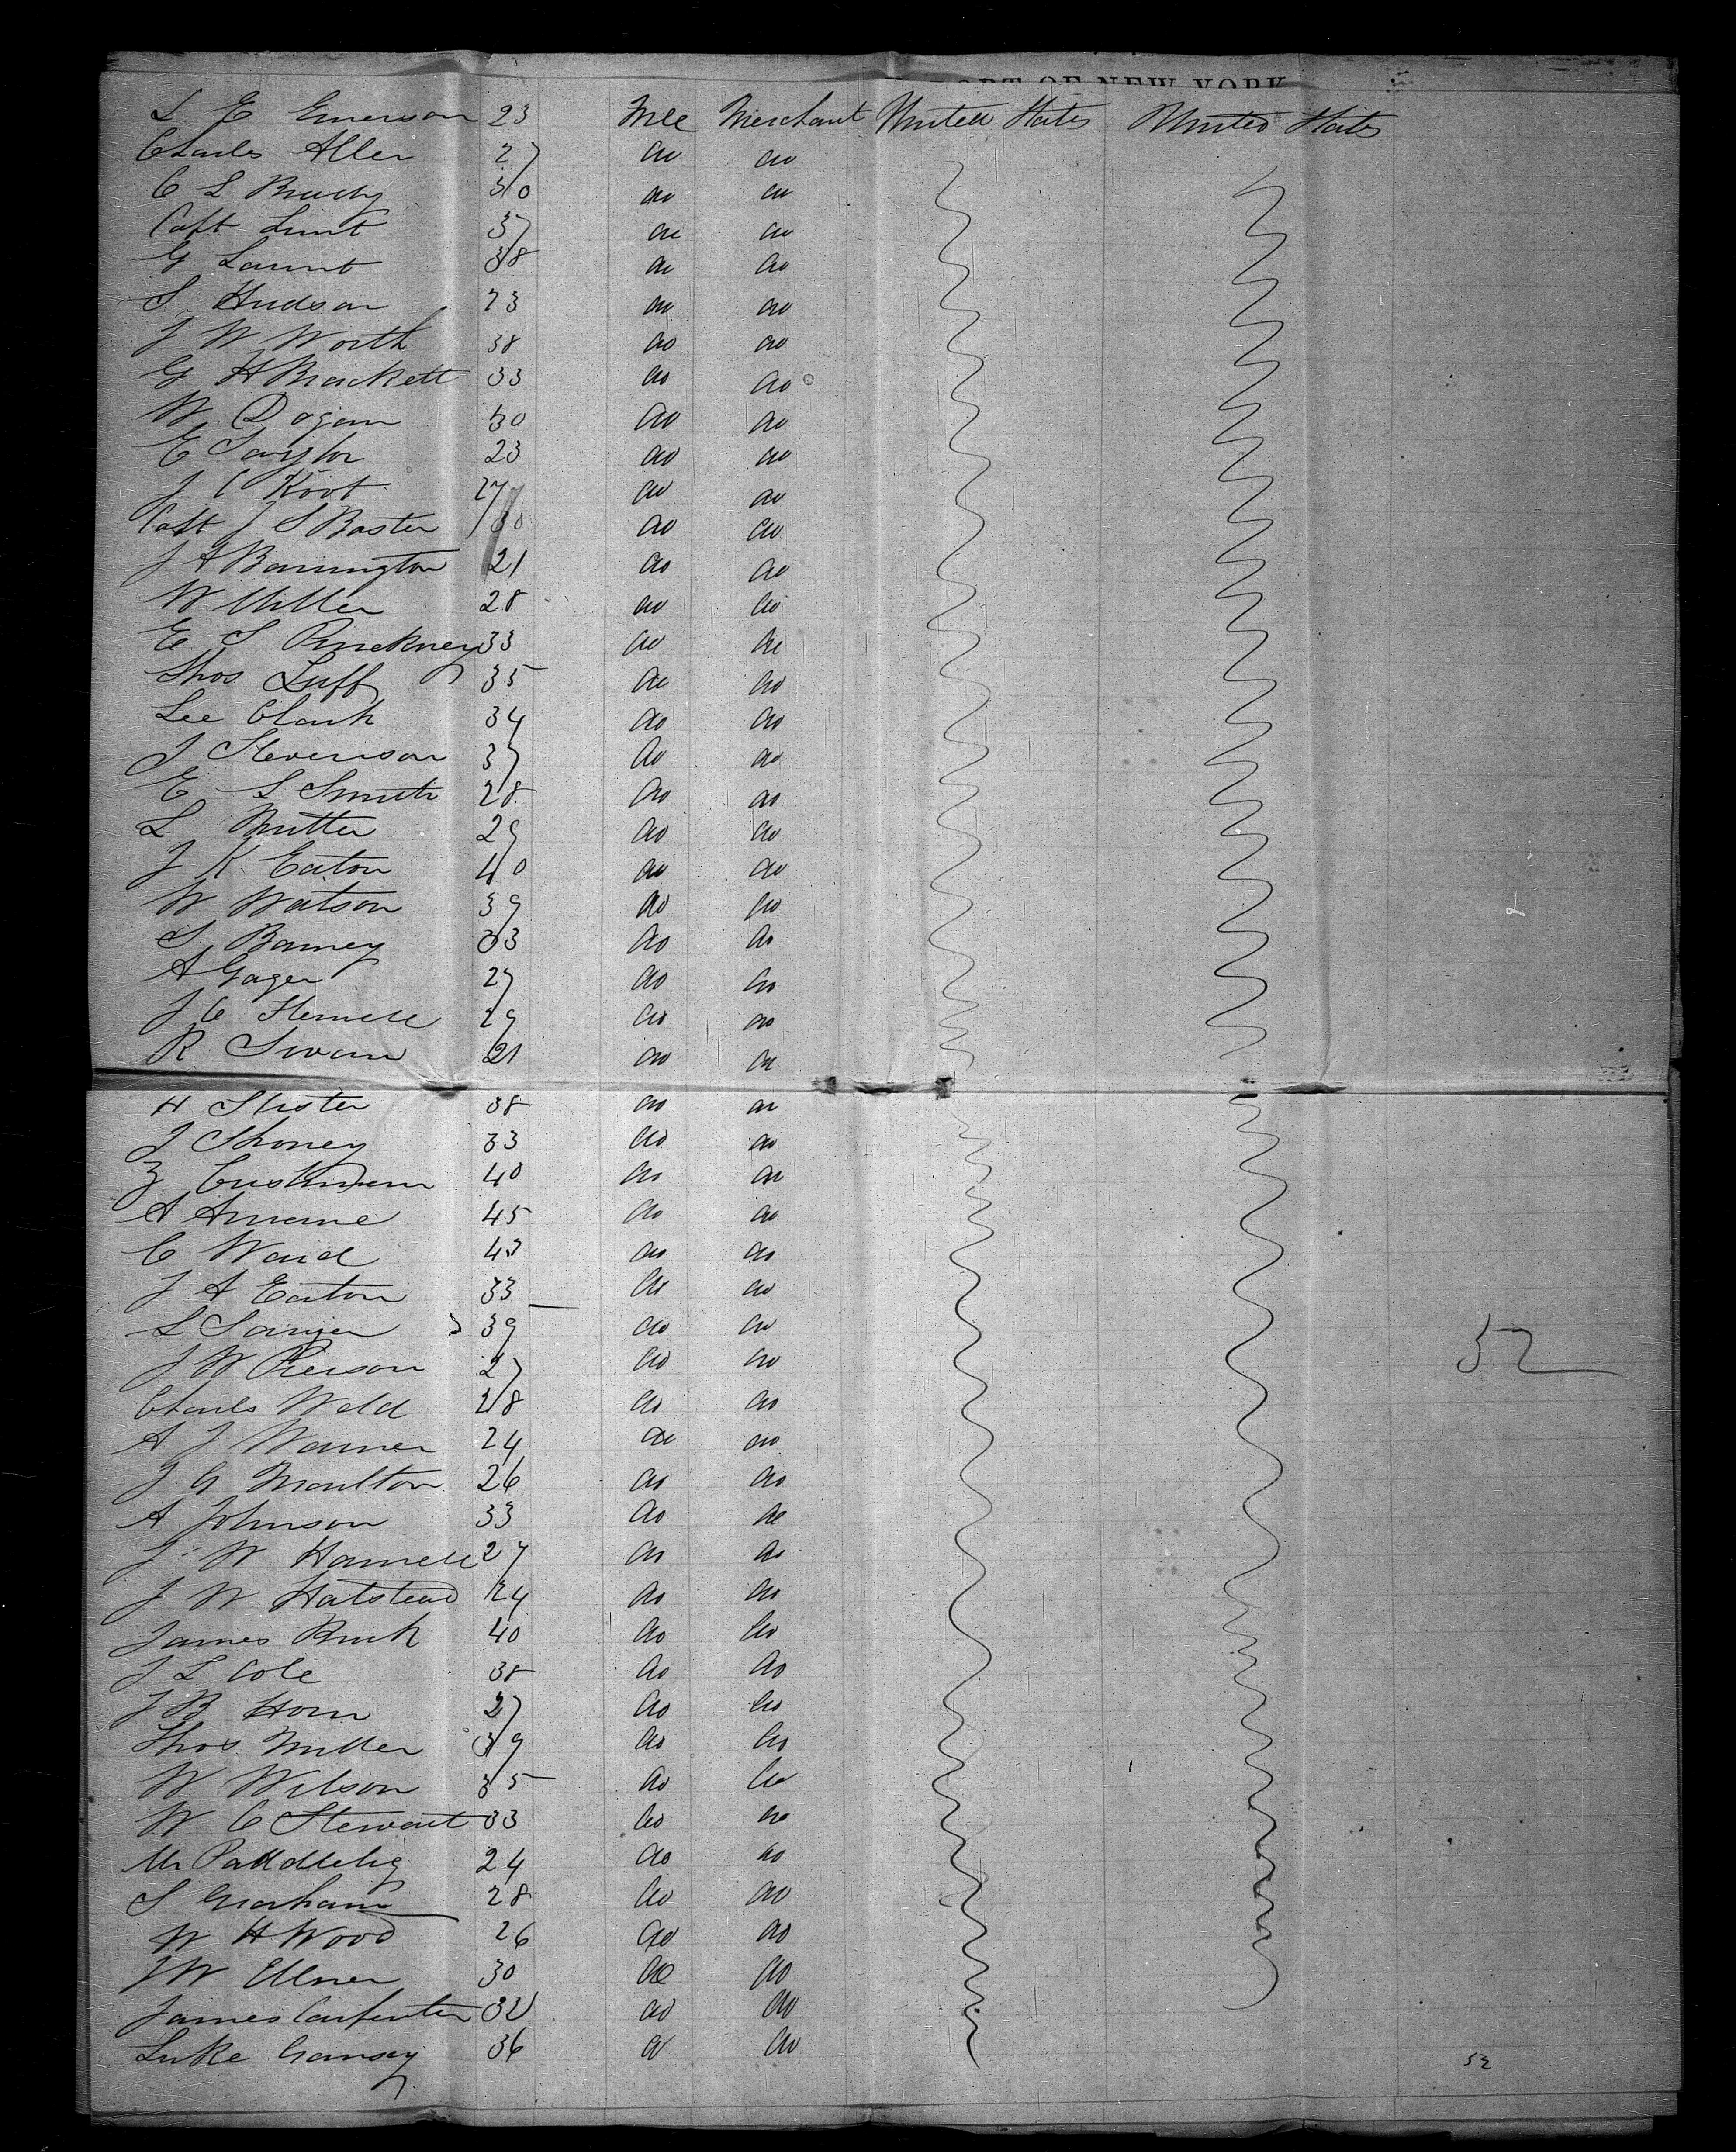 PORT OF NEW YORK
L E Emerson 23 Mle Merchant United States United States
Charles Allen 27 do do
C L Brady 30 do do
Capt Lunt 37 do do
G Launt 38 do do
S Hudson 23 do do
J W Worth 38 do do
G H Brackett 33 do do
W Dogan 30 do do
E Saylor 23 do do
J C Root 27 do do
Capt J S Baster 30 do do
J A Barrington 21 do do
W Miller 28 do do
E S Pinckney 33 do do
Thos Luff 35 do do
Lee Clark 34 do do
J Stevenson 37 do do
E S Smith 28 do do
L Mutter 29 do do
J K Eaton 40 do do
W Watson 39 do do
S Barney 33 do do
A Gager 27 do do
J C 29 do do
R Swain 21 do do
H 38 do do
J Shoney 33 do do
Z Cushman 40 do do
A 45 do do
C Ward 43 do do
J A Eaton 33 do do
L Sawyer 39 do do
J W Pierson 27 do do
Charles Weld 28 do do
A J Warner 24 do do
J G Moulton 26 do do
A Johnson 33 do do
J W 27 do do
J W Halstead 24 do do
James Buck 40 do do
J L Cole 38 do do
J B Horn 27 do do
Thos Miller 39 do do
W Wilson 35 do do
W C Stewart 33 do do
Mr 24 do do
S Graham 28 do do
W H Wood 26 do do
J W 30 do do
James Carpenter 32 do do
Luke 36 do do
52
52